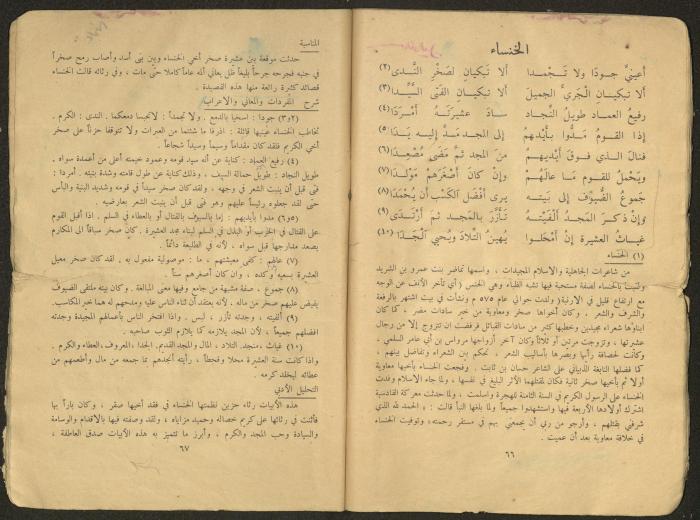 الخنساء
أعينيّ جودا ولا تجمدا ألا تبكيان لصخر الندى (٢)
ألا تبكيان الجريّ الجميل ألا تبكيان الفتى السيّدا (٣)
رفيع العماد طويل النجاد ساد عشيرته أمردا (٤)
إذا القوم مدّوا بأيديهم إلى المجد مدّ إليه يدا (٥)
فنال الذي فوق أيديهم من المجد ثمّ مضى مصعدا (٦)
ويحمل للقوم ما عالهم وإن كان أصغرهم مولدا (٧)
جموع الضيوف إلى بيته يرى أفضل الكسب أن يحمدا (٨)
وإن ذكر المجد ألفيته تأزّر بالمجد ثم ارتدى (٩)
غياث العشيرة إن أمحلوا يهين التلاد ويحيي الجدا (١٠)
(١) الخنساء
من شاعرات الجاهلية والاسلام المجيدات ، واسمها تماضر بنت عمرو بن الشريد
ولقبت بالخنساء لصفة مستحبة فيها تشبه الظباء وهي الخنس (أي تأخر الأنف عن الوجه
مع ارتفاع قليل في الارنبة) ولدت حوالي عام ٥٧٥ م ونشأت في بيت اشتهر بالرفعة
والشرف والشعر . وكان أخواها صخر ومعاوية من خير سادات مضر . كما كان
ابناؤها شعراء مجيدين وخطبها كثير من سادات القبائل فرفضت ان تتزوج إلا من رجال
عشيرتها ، وتزوجت مرتين أو ثلاثاً وكان آخر أزواجها مرداس بن أبي عامر السلمي .
وكانت لحصافة رأيها وبصرها بأساليب الشعر ، تحكم بين الشعراء وتفاضل بينهم ،
كما فضلها النابغة الذبياني على الشاعر حسان بن ثابت . وفجعت الخنساء بأخيها معاوية
أولا ثم بأخيها صخر ثانية فكان لمقتلهما الأثر البليغ في نفسها ، ولما جاء الاسلام وفدت
الخنساء على الرسول الكريم في السنة الثامنة للهجرة واسلمت . ولما حدثت معركة القادسية
اشترك أولادها الأربعة فيها واستشهدوا جميعاً ولما بلغها النبأ قالت : « الحمد لله الذي
شرفني بقتلهم ، وأرجو من ربي أن يجمعني بهم في مستقر رحمته » وتوفيت الخنساء
في خلافة معاوية بعد أن عميت .
٦٦
المناسبة
حدثت موقعة بين عشيرة صخر أخي الخنساء وبين بني أسد وأصاب رمح صخراً
في جنبه فجرحه جرحاً بليغاً ظل يعاني ألمه عاماً كاملا حتى مات ، وفي رثائه قالت الخنساء
قصائد كثيرة رائعة منها هذه القصيدة .
شرح المفردات والمعاني والاعراب
(٢و٣) جودا : اسخيا بالدمع . ولا تجمدا : لاتحبسا دمعكما . الندى : الكرم .
تخاطب الخنساء عينيها قائلة : اذرفا ما شئتما من العبرات ولا تتوقفا حزناً على صخر
أخي الكريم فلقد كان مقداماً وسيماً وسيداً شجاعاً .
(٤) رفيع العماد : كناية عن أنه سيد قومه وعمود خيمته أعلى من أعمدة سواه .
طويل النجاد : طويل حمالة السيف ، وذلك كناية عن طول قامته وشدة بنيته . أمردا :
فتى قبل أن ينبت الشعر في وجهه ، ولقد كان صخر سيداً في قومه وشديد البنية والبأس
حتى لقد جعلوه رئيساً عليهم وهو فتى قبل أن ينبت الشعر بعارضيه .
(٥و٦) مدوا بأيديهم : إما بالسيوف بالقتال أو بالعطاء في السلم . اذا أقبل القوم
على القتال في الحرب أو البذل في السلم لبناء مجد العشيرة . كان صخر سباقاً الى المكارم
يصعد مدارجها قبل سواه ، لأنه في الطليعة دائماً .
(٧) عالهم : كفى معيشتهم ، ما : موصولية مفعول به . لقد كان صخر معيل
العشيرة بسعيه وكده ، وان كان أصغرهم سناً .
(٨) جموع ، صفة مشبهة من جامع وفيها معنى المبالغة . وكان بيته ملتقى الضيوف
يفيض عليهم صخر من ماله . لأنه يعتقد أن ثناء الناس عليه ومدحهم له هما خير المكاسب.
(٩) ألفيته ، وجدته تأزر ، لبس . واذا افتخر الناس بأعمالهم المجيدة وجدته
افضلهم جميعاً ، لأن المجد يلازمه كما يلازم الثوب صاحبه .
(١٠) غياث ، منجد. التلاد ، المال والمجد القديم. الجدا، المعروف والعطاء والكرم .
واذا كانت سنة العشيرة محلا وقحطاً ، رأيته أنجدهم بما جمعه من مال وأطعمهم من
عطائه ليخلد كرمه .
التحليل الأدبي
هذه الأبيات رثاء حزين نظمتها الخنساء في فقد أخيها صقر ، وكان باراً بها
فأثنت في رثائها على كريم خصاله وحميد مزاياه ، ولقد وصفته فيها بالاقدام والوسامة
والسيادة وحب المجد والكرم ، وأبرز ما تتميز به هذه الأبيات صدق العاطفة ،
٦٧